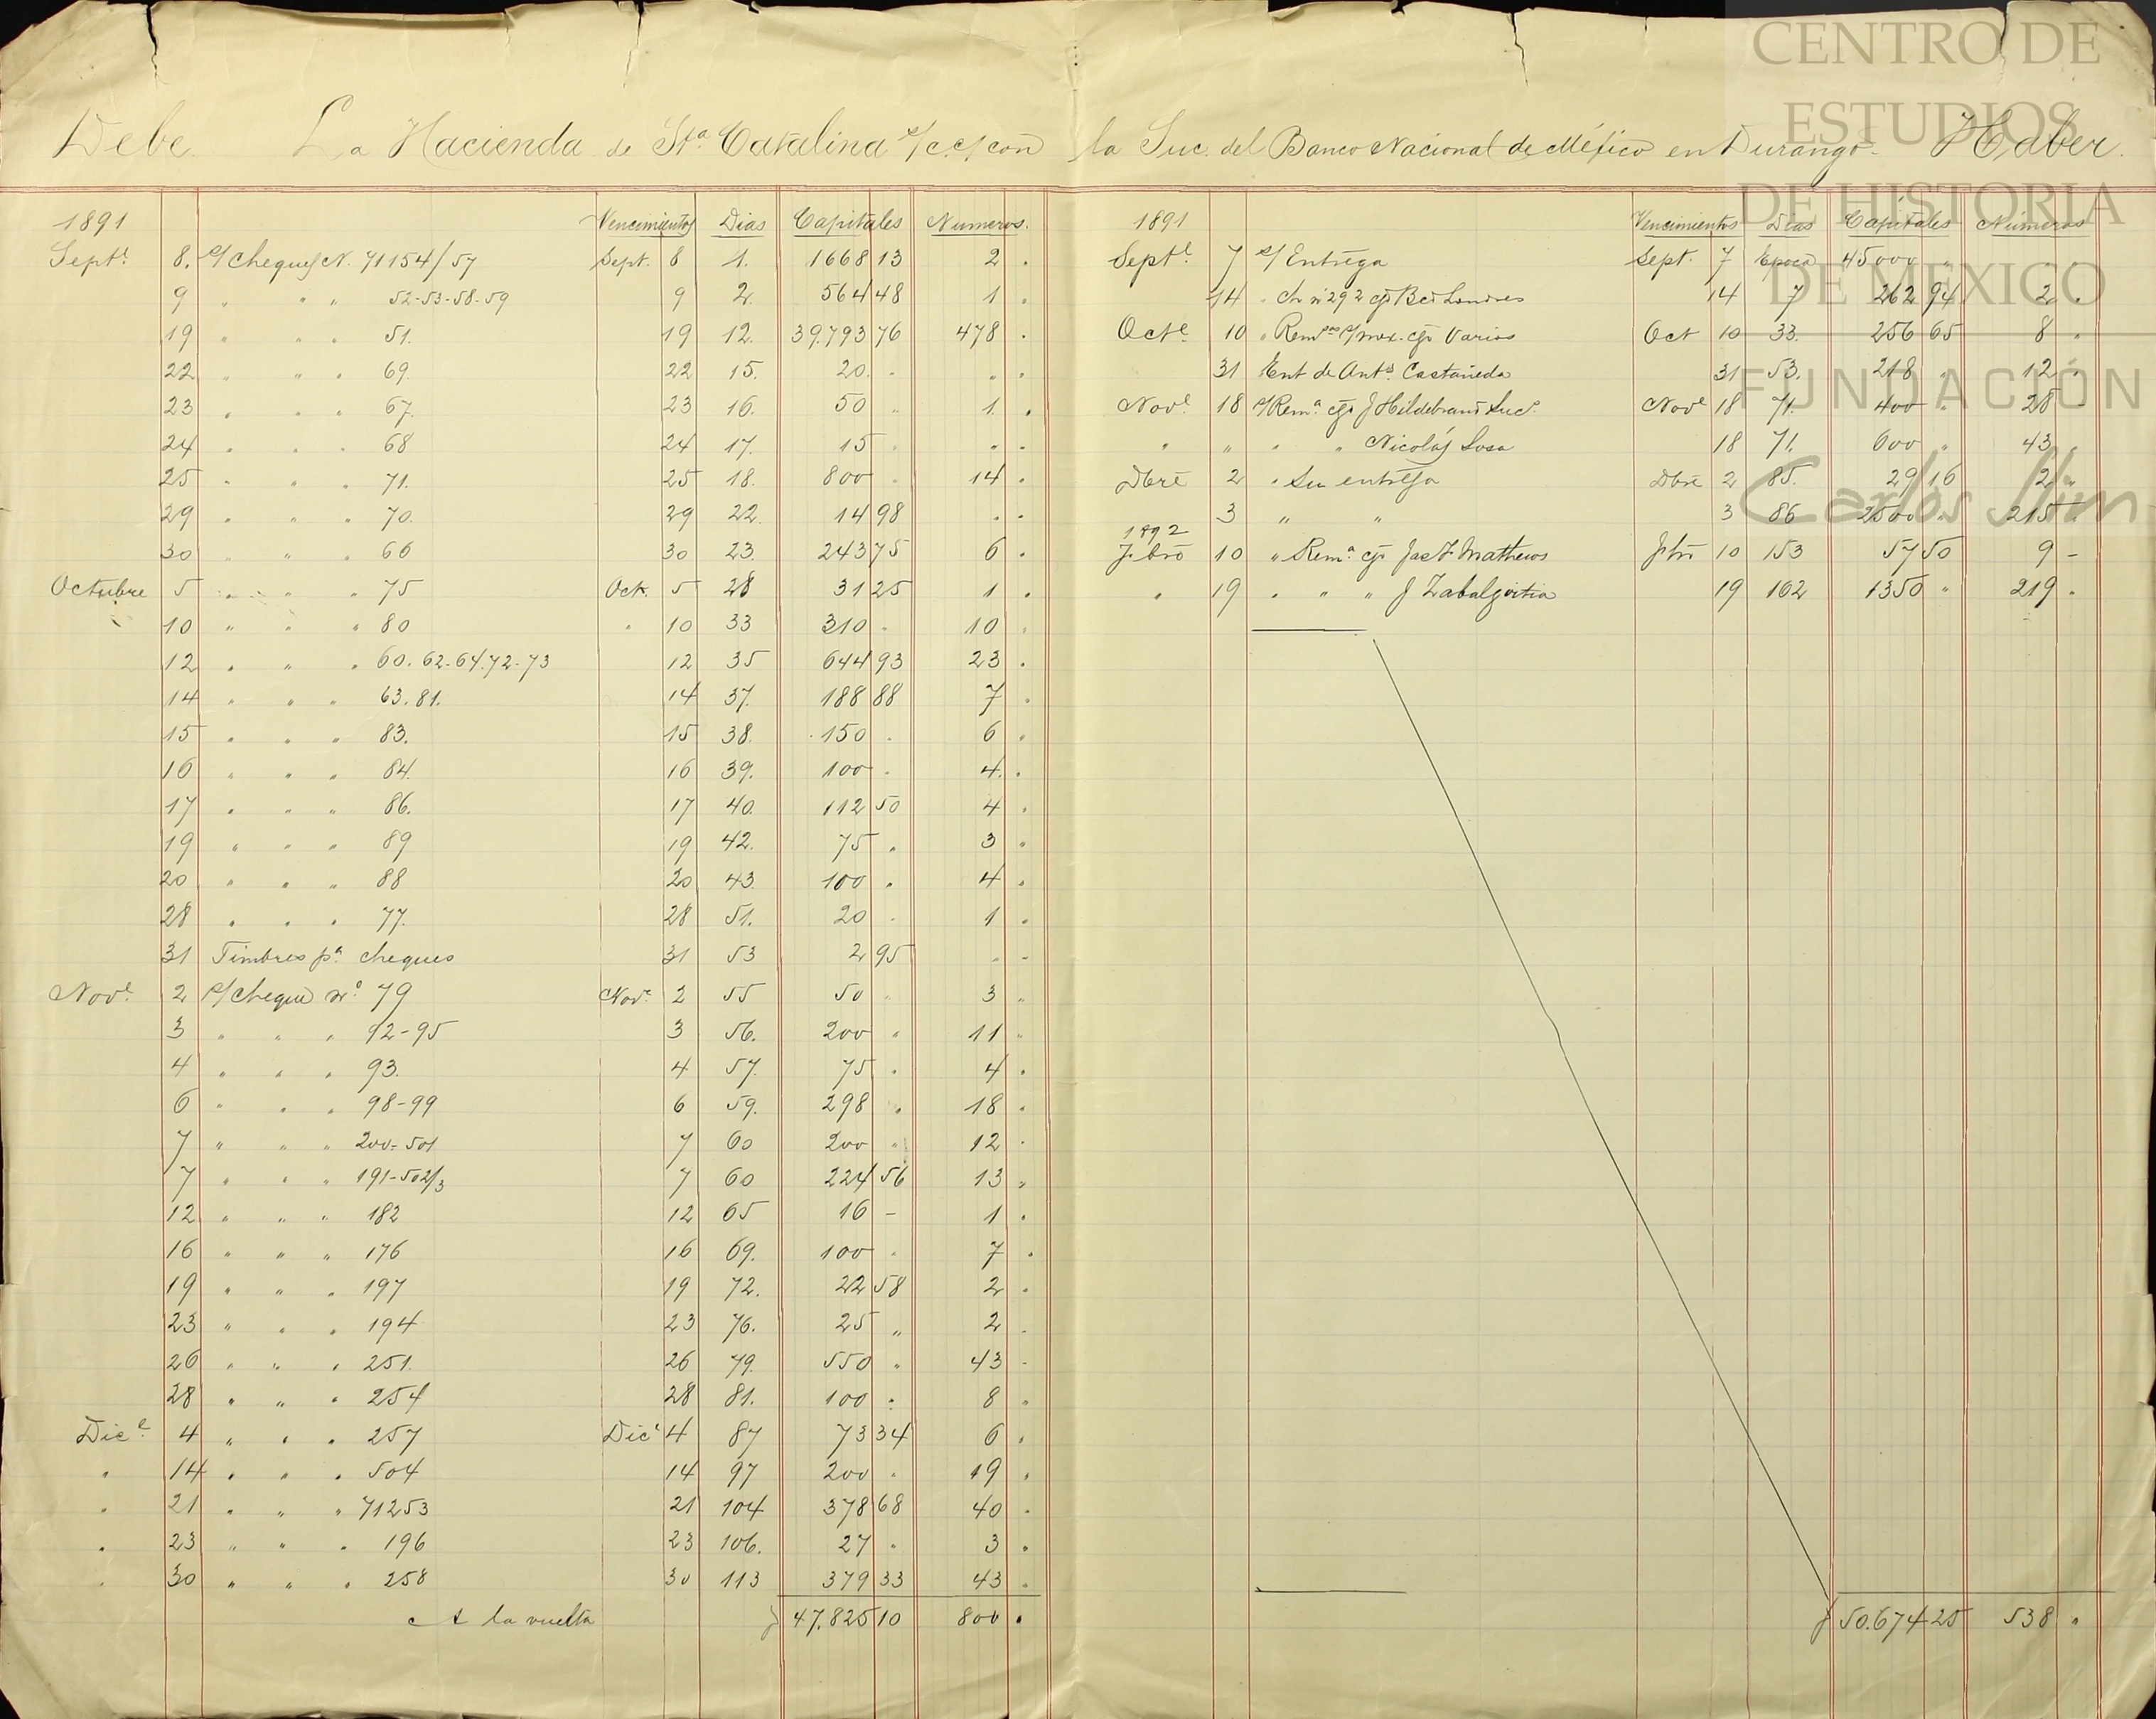 CENTRO DE
ESTUDIOS
DE HISTORIA
DE MEXICO
FUNDACIÓN
Carlos Slim
Debe La Hacienda de Sta. Catalina s/c.c/ con la Suc. del Banco Nacional de México en Durango. Haber.
1891 Vencimientos Dias Capitales Numeros.
Septe. 8. s/ Cheques N. 71154/57 Sept. 8 1. 1668 13 2 .
9 " " " 52-53-58-59 9 2. 564 48 1 .
19 " " " 51. 19 12. 39.793 76 478 .
22 " " " 69. 22 15. 20. " " .
23 " " " 67. 23 16. 50 " 1. .
24 " " " 68 24 17. 15 " " "
25 " " " 71. 25 18. 800 " 14 .
29 " " " 70. 29 22. 14 98 " "
30 " " " 66 30 23. 243 75 6 .
Octubre 5 " " " 75 Oct. 5 28 31 25 1 .
10 " " " 80 " 10 33 310 " 10 .
12 " " " 60. 62-64.72-73 12 35 644 93 23 .
14 " " " 63.81. 14 37. 188 88 7 .
15 " " " 83. 15 38. 150 " 6 .
16 " " " 84. 16 39. 100 " 4. .
17 " " " 86. 17 40. 112 50 4 .
19 " " " 89 19 42. 75 " 3 "
20 " " " 88 20 43. 100 " 4 .
28 " " " 77. 28 51. 20 " 1 .
31 Timbres pa. cheques 31 53 2 95 " "
Nove. 2 s/ Cheque no. 79 Nove. 2 55 50 " 3 "
3 " " " 92-95 3 56. 200 " 11 "
4 " " " 93. 4 57. 75 " 4 .
6 " " " 98-99 6 59. 298 " 18 .
7 " " " 200-501 7 60 200 " 12 .
7 " " " 191-502/3 7 60 224 56 13 "
12 " " " 182 12 65 16 - 1 .
16 " " " 176 16 69. 100 " 7 .
19 " " " 197 19 72. 22 58 2 .
23 " " " 194 23 76. 25 " 2 .
26 " " " 251. 26 79. 550 " 43 -
28 " " " 254 28 81. 100 " 8 "
Dice. 4 " " " 257 Dice 4 87 73 34 6 .
" 14 " " " 504 14 97 200 " 19 .
" 21 " " " 71253 21 104 378 68 40 .
" 23 " " " 196 23 106. 27 " 3 .
" 30 " " " 258 30 113 379 33 43 .
A la vuelta $ 47.825 10 800 .
1891 Vencimientos Dias Capitales Números
Septe. 7 s/ Entrega Sept. 7 Epoca 45000 "
14 " Ch n 292 c/o Bco Londres 14 7 262 94 2 .
Octe. 10 " Remas s/ c/o Varios Oct 10 33. 256 65 8 "
31 Ent de Anto. Castañeda 31 53. 218 " 12 .
Nove. 18 s/ Rema. c/o J Hildebrand Suc. Nove 18 71. 400 " 28 -
" " " " Nicolás Sosa 18 71. 600 " 43 .
Dbre 2 " Su entrega Dbre 2 85. 29 16 2 "
3 " " 3 86 2500 " 215 .
1892
Fbro 10 " Rema. c/o Jas F Mathews Fbro 10 153 57 50 9 -
" 19 " " " J Zabalgoitia 19 162 1350 " 219 .
$ 50.674 25 538 "